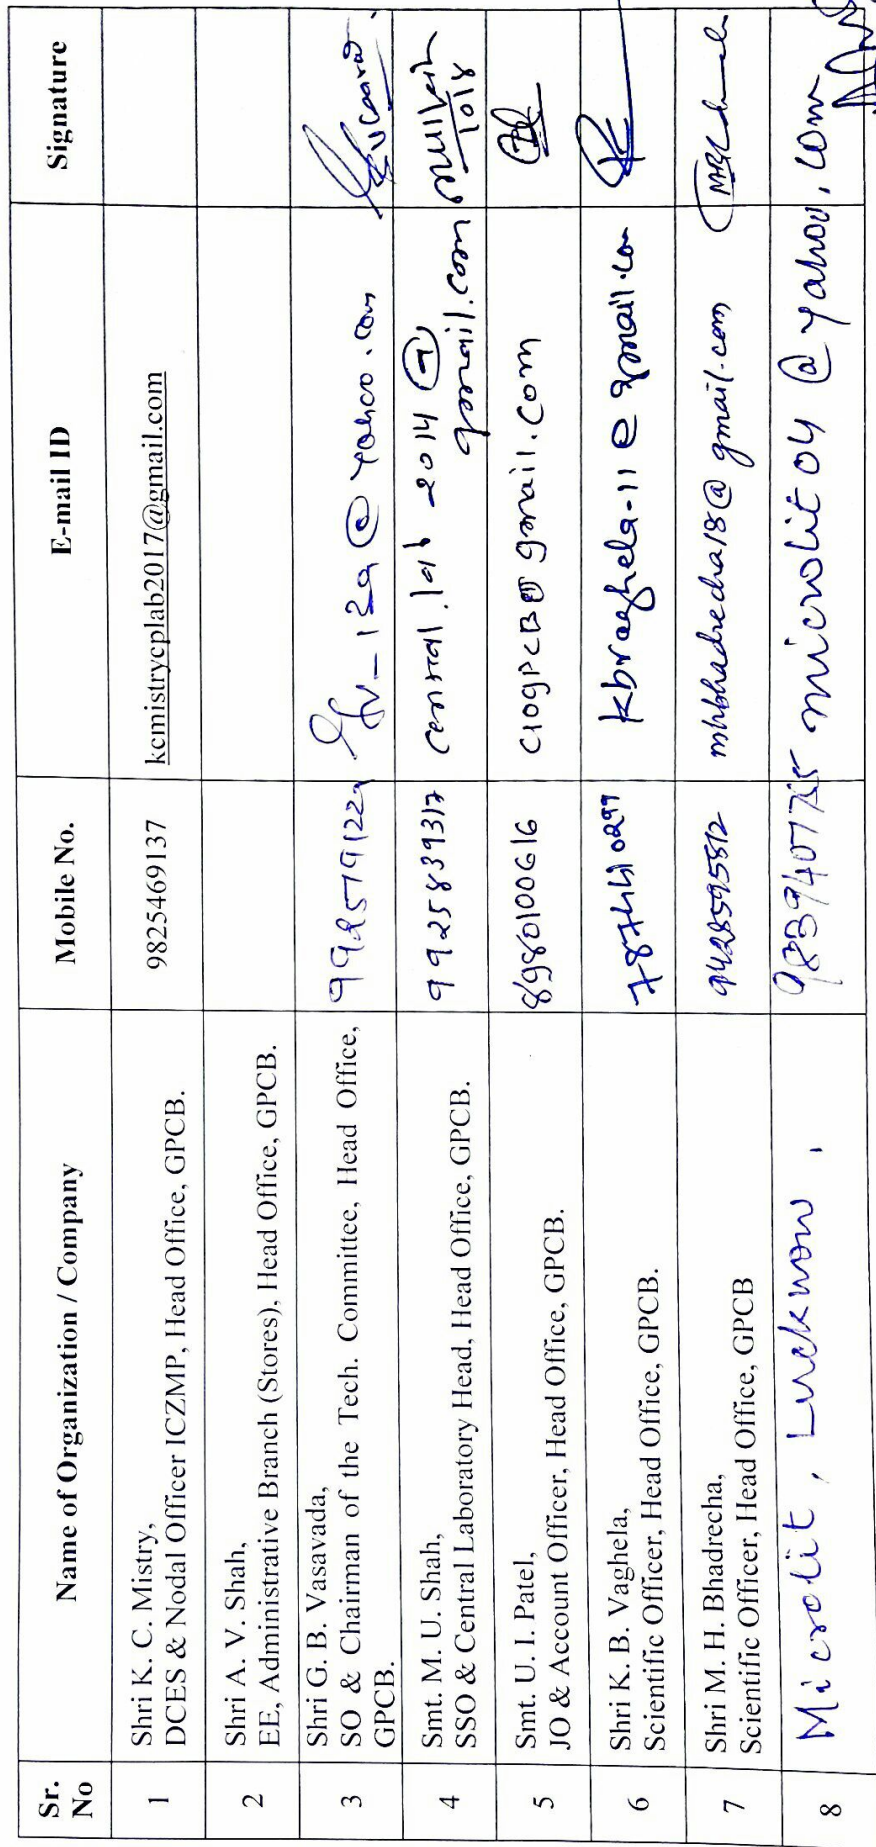 Sr. No
Name of Organization / Company
Mobile No.
E-mail ID
Signature
1
Shri K. C. Mistry,
DCES & Nodal Officer ICZMP, Head Office, GPCB.
9825469137
kcmistrycplab2017@gmail.com
2
Shri A. V. Shah,
EE, Administrative Branch (Stores), Head Office, GPCB.
3
Shri G. B. Vasavada,
SO & Chairman of the Tech. Committee, Head Office,
GPCB.
@ yahoo.com
4
Smt. M. U. Shah,
SSO & Central Laboratory Head, Head Office, GPCB.
9925839317
central.lab-2014@
gmail.com
5
Smt. U. I. Patel,
JO & Account Officer, Head Office, GPCB.
8980100616
6
Shri K. B. Vaghela,
Scientific Officer, Head Office, GPCB.
kbvaghela-11@gmail.com
7
Shri M. H. Bhadrecha,
Scientific Officer, Head Office, GPCB
9428595812
mhbhadrecha18@gmail.com
8
Microlit, Lucknow,
microlit04@yahoo.com